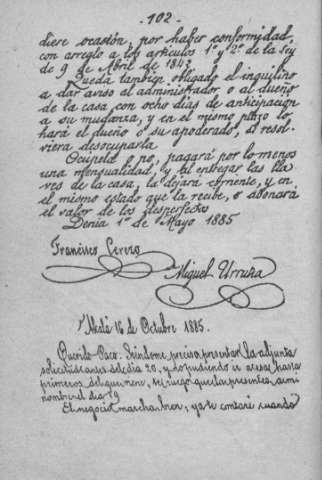 - 102 -
diese ocasión, por haber conformidad,
con arreglo a los artículos 1º y 2º de la ley
de 9 de Abril de 1843.
Queda también obligado el inquilino
a dar aviso al administrador o al dueño
de la casa con ocho días de anticipación
a su mudanza, y en el mismo plazo lo
hará el dueño o su apoderado, si resol-
viera desocuparla.
Ocupela o no, pagará por lo menos
una mensualidad, y al entregar las lla-
ves de la casa, la dejará corriente, y en
el mismo estado que la recibe, o abonará
el valor de los desperfectos
Denia 1º de Mayo 1885
Francisco Cerezo
Miguel Urruña
Alcalá 16 de Octubre 1885.
Querido Paco: Siéndome preciso presentar la adjunta
solicitud antes del día 20, y no pudiendo ir a esa hasta
primeros del que viene, te ruego que la presentes a mi
nombre el día 19
El negocio marcha bien, ya te contaré cuando